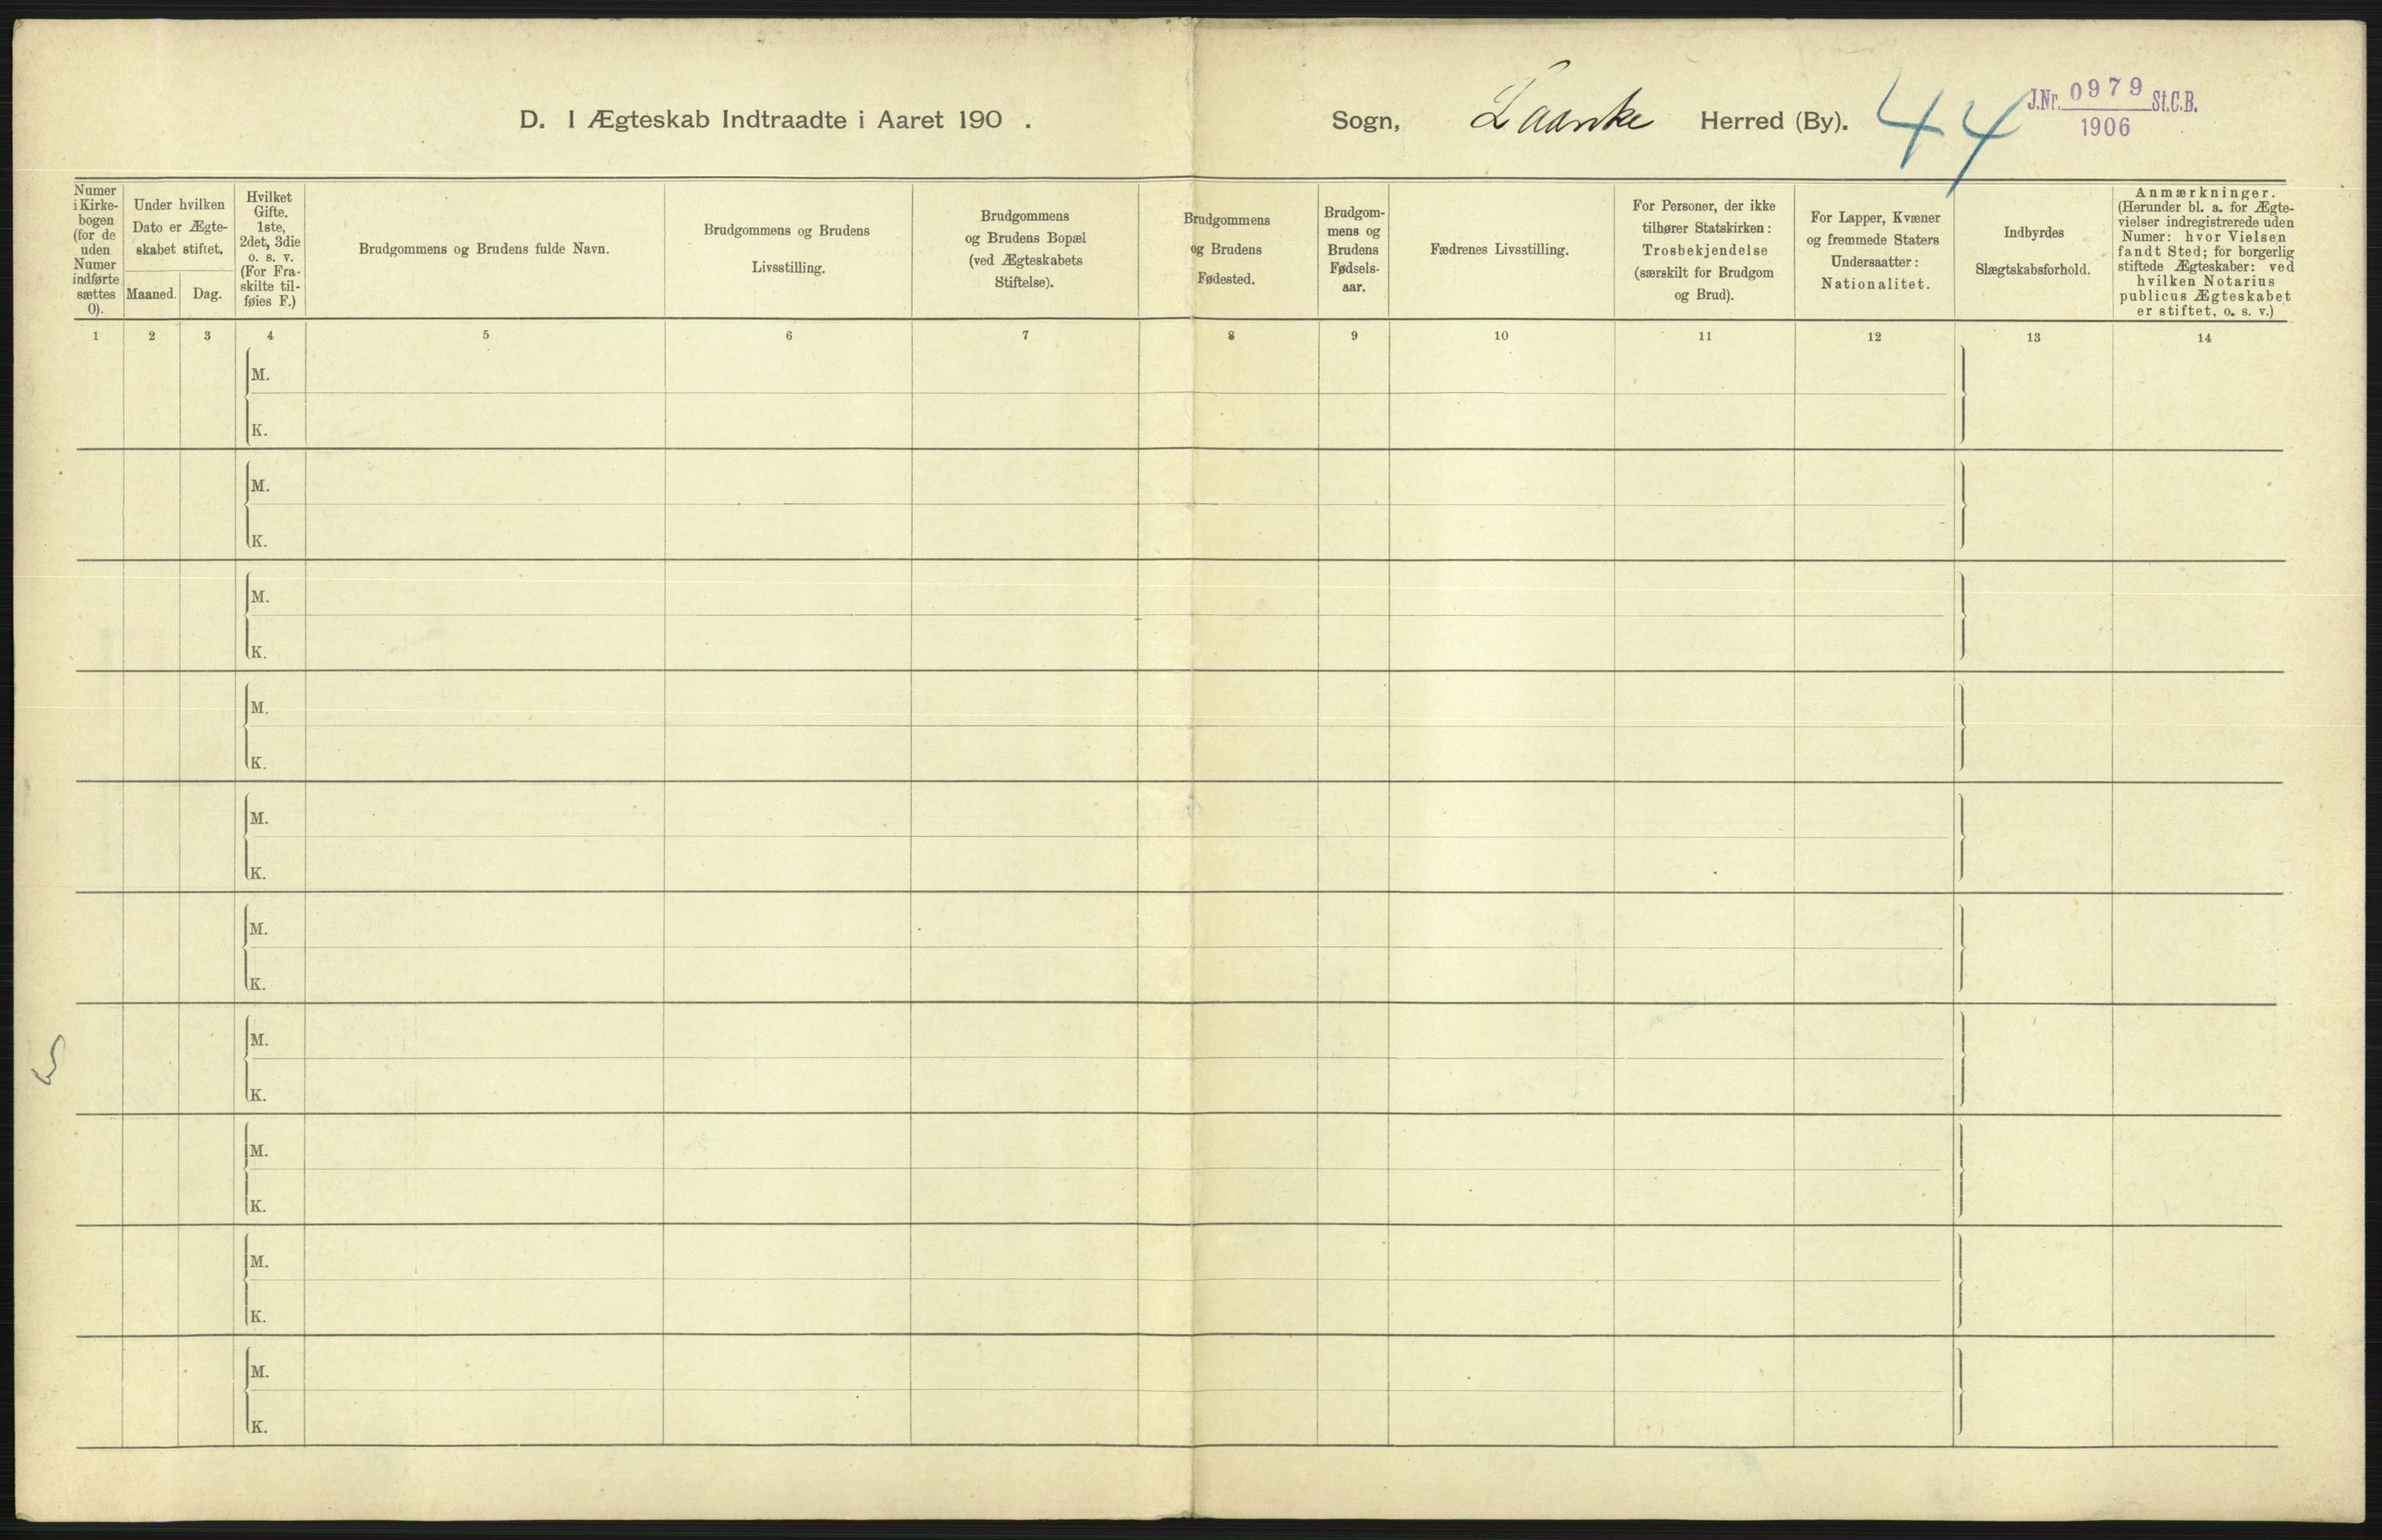 D. I Ægteskab Indtraadte i Aaret 190 . Sogn, Laanke Herred (By). 44
J.Nr. 0979 St.C.B.
1906
Numer
i Kirke-
bogen
(for de
uden
Numer
indførte
sættes
0).
Under hvilken
Dato er Ægte-
skabet stiftet.
Maaned. Dag.
Hvilket
Gifte.
1ste,
2det, 3die
o. s. v.
(For Fra-
skilte til-
føies F.)
Brudgommens og Brudens fulde Navn.
Brudgommens og Brudens
Livsstilling.
Brudgommens
og Brudens Bopæl
(ved Ægteskabets
Stiftelse).
Brudgommens
og Brudens
Fødested.
Brudgom-
mens og
Brudens
Fødsels-
aar.
Fædrenes Livsstilling.
For Personer, der ikke
tilhører Statskirken:
Trosbekjendelse
(særskilt for Brudgom
og Brud).
For Lapper, Kvæner
og fremmede Staters
Undersaatter:
Nationalitet.
Indbyrdes
Slægtskabsforhold.
Anmærkninger.
(Herunder bl. a. for Ægte-
vielser indregistrerede uden
Numer: hvor Vielsen
fandt Sted; for borgerlig
stiftede Ægteskaber: ved
hvilken Notarius
publicus Ægteskabet
er stiftet, o. s. v.)
1 2 3 4 5 6 7 8 9 10 11 12 13 14
M.
K.
M.
K.
M.
K.
M.
K.
M.
K.
M.
K.
M.
K.
M.
K.
M.
K.
M.
K.